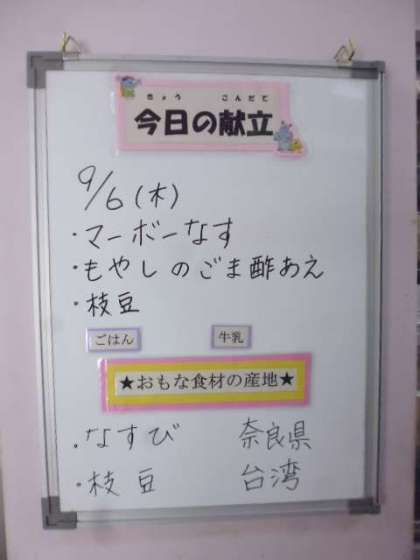 きょう こんだて
今日の献立
9/6(木)
・マーボーなす
・もやしのごま酢あえ
・枝豆
ごはん 牛乳
★おもな食材の産地★
・なすび 奈良県
・枝豆 台湾